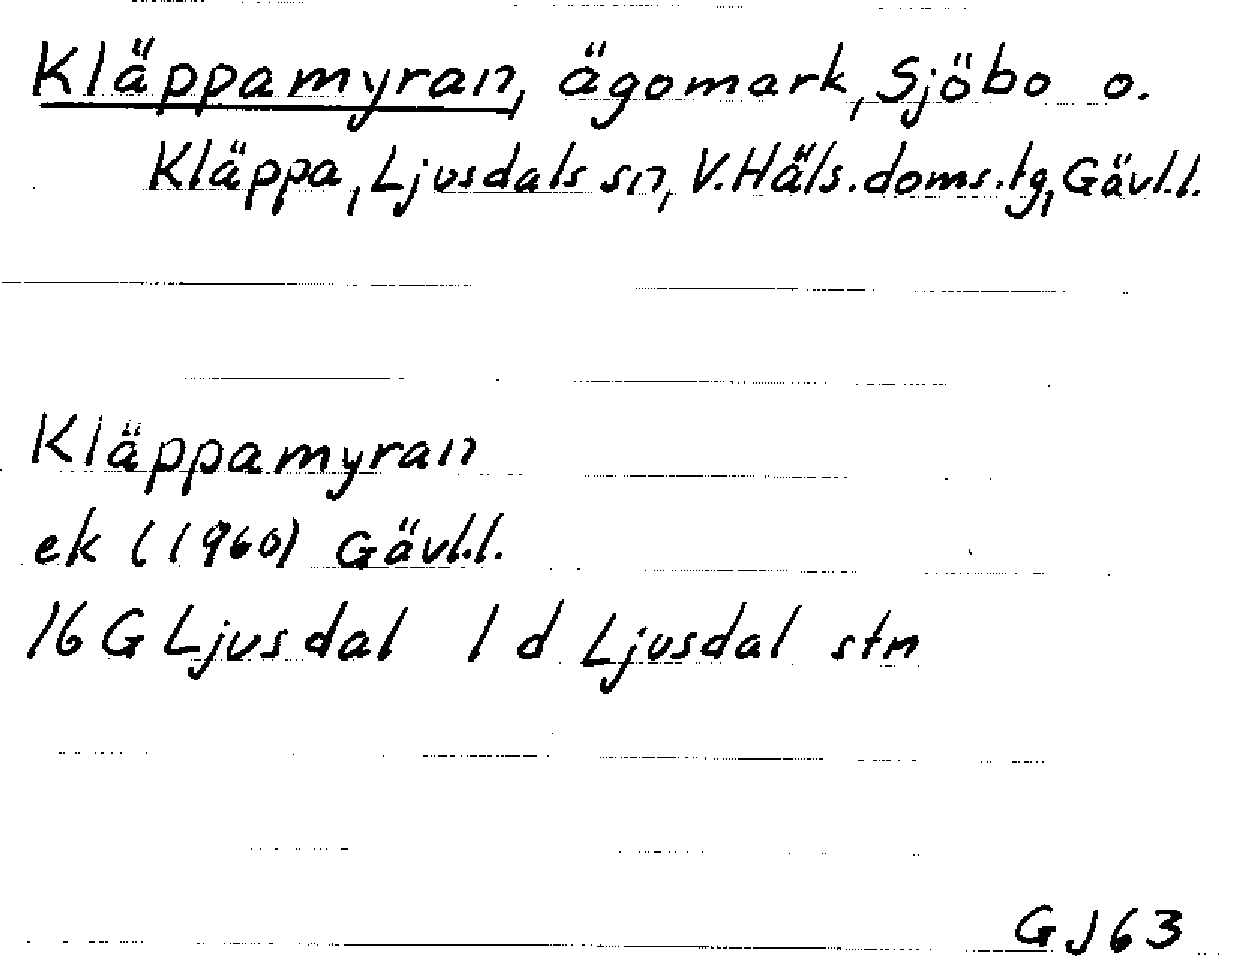 Kläppamyran, ägomark, Sjöbo o.
Kläppa, Ljusdals sn, V.Häls.doms.tg, Gävl.l.
Kläppamyran
ek (1960) Gävl.l.
16 G Ljusdal 1 d Ljusdal stn
GJ63